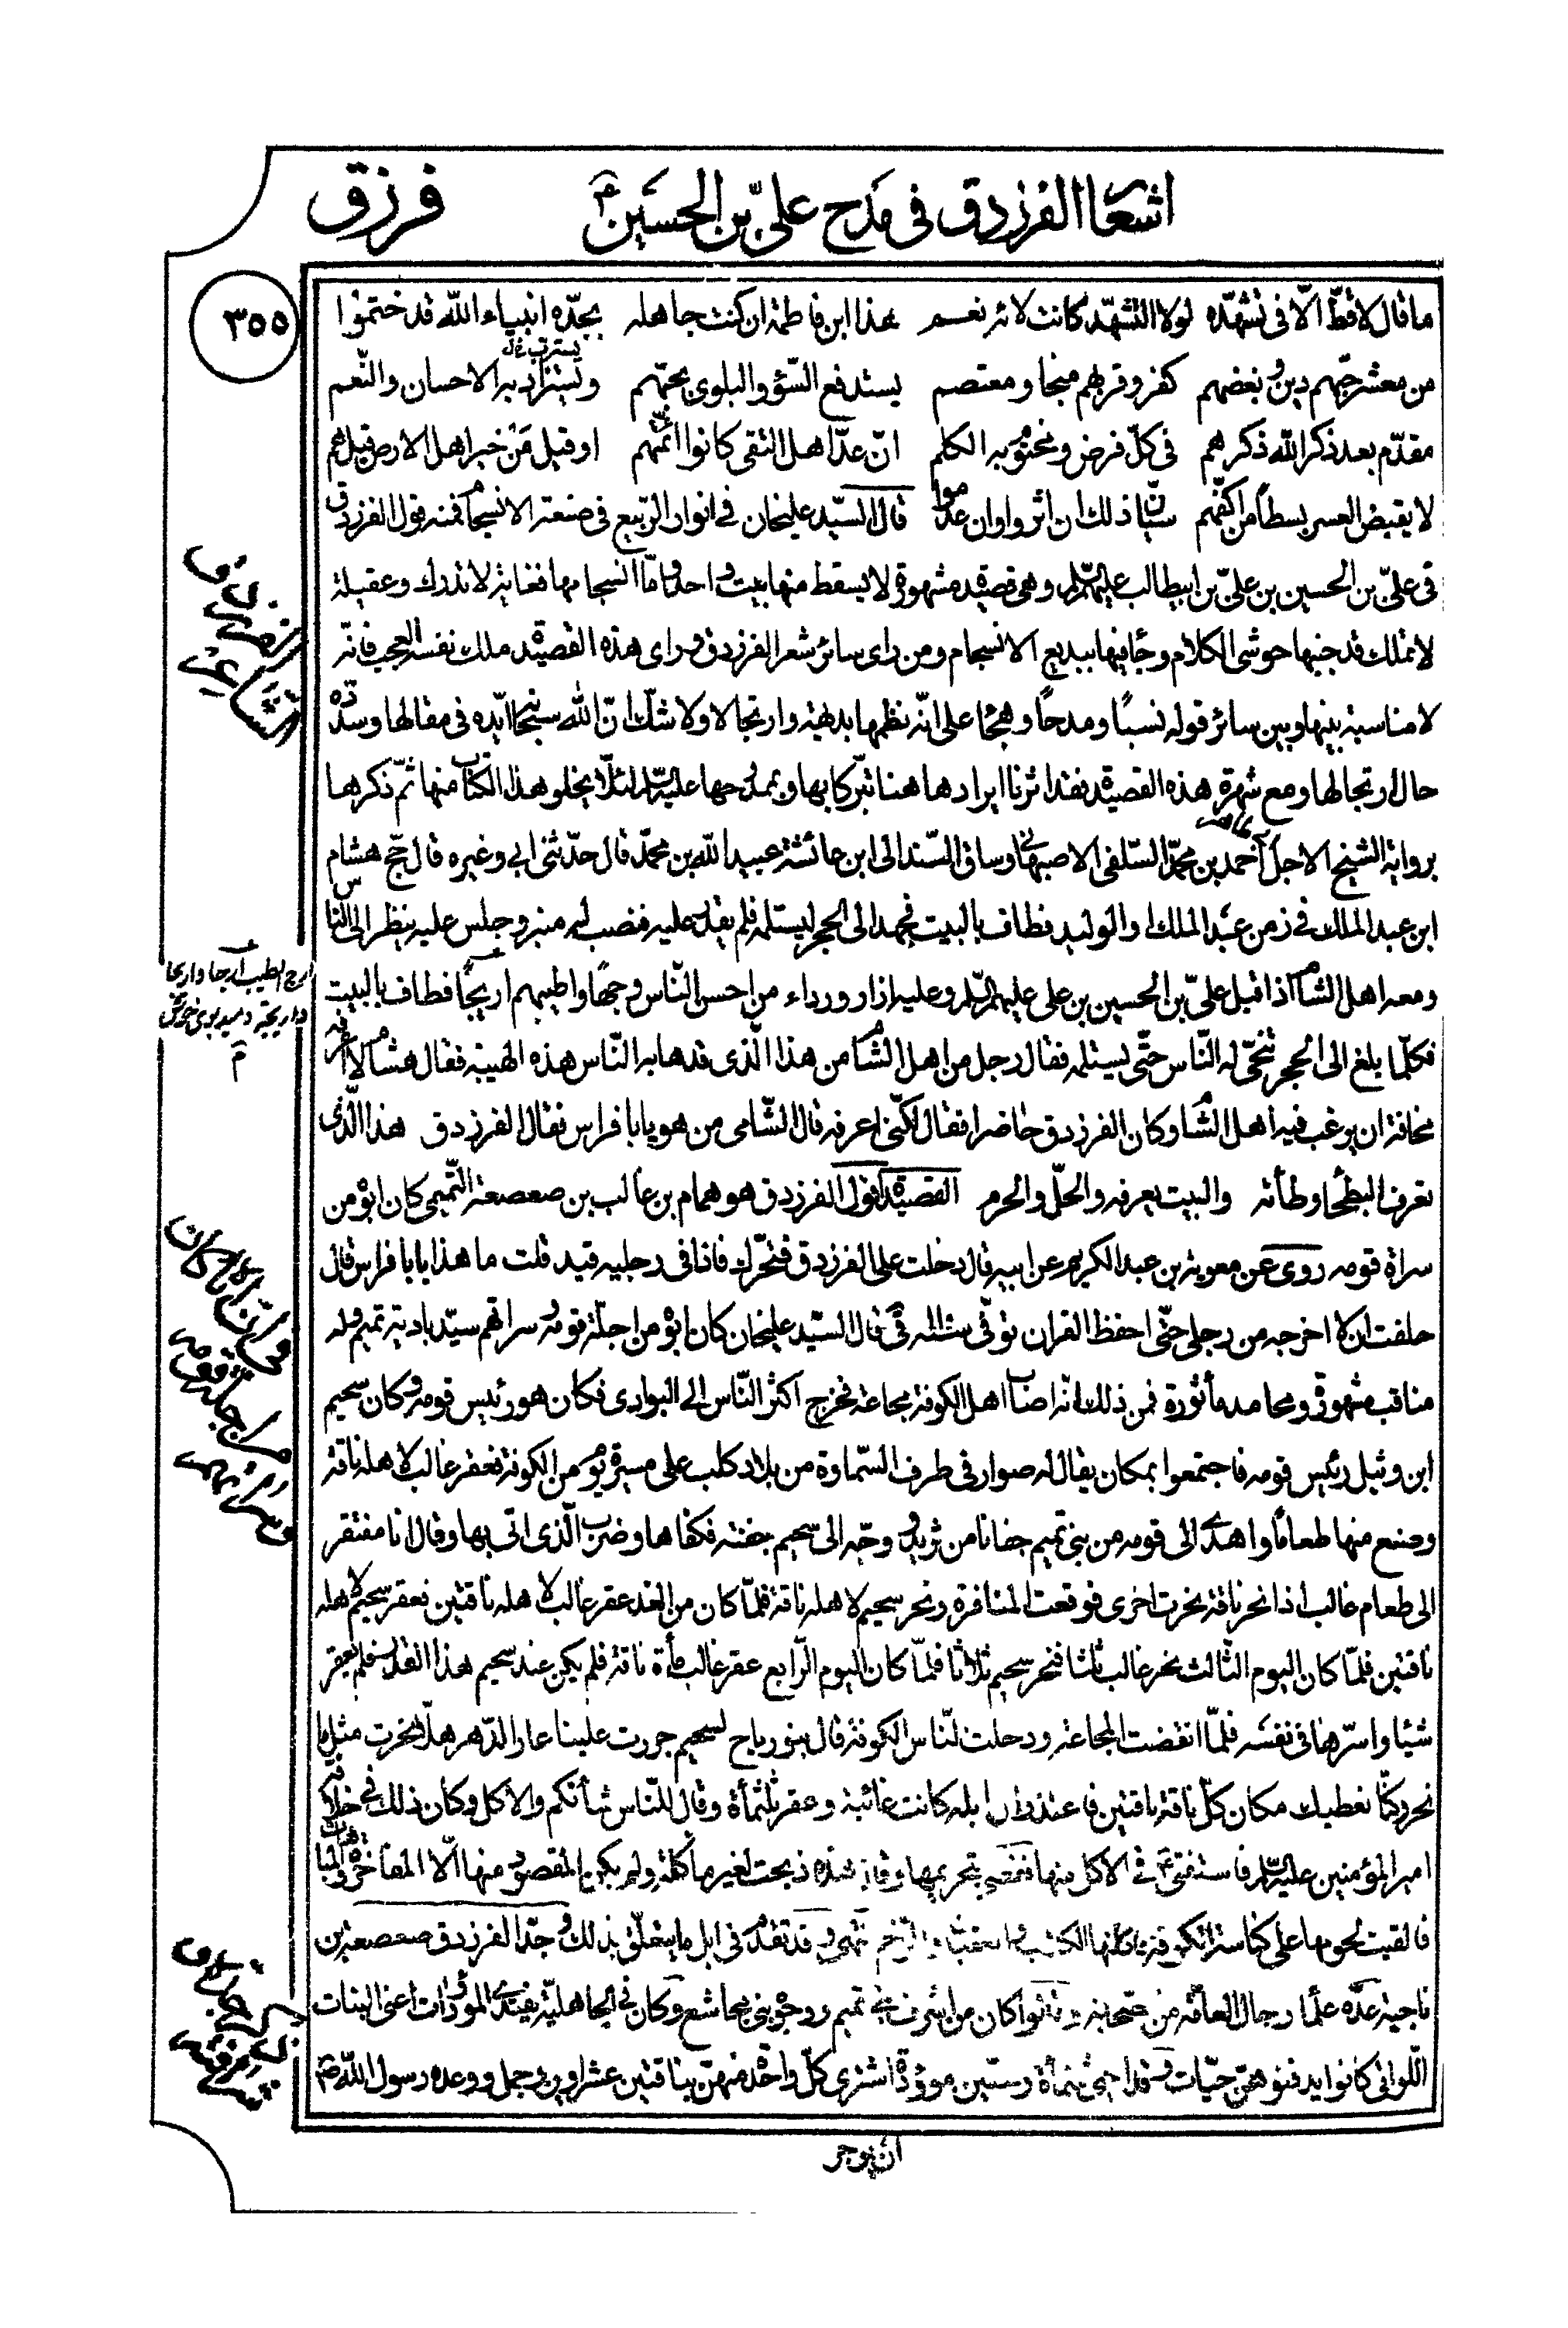 اشعار الفرزدق في مدح علي بن الحسين ع
فرزق
٣٥٥
ما قال لا قطّ الّا في تشهّده لولا التشهّد كانت لائه نعم هذا ابن فاطمة ان كنت جاهله بجدّه انبياء الله قد ختموا
من معشر حبّهم دين وبغضهم كفر وقربهم منجا ومعتصم يستدفع السّوء والبلوى بحبّهم ويستزاد به الاحسان والنّعم
يسترب خ ل
مقدّم بعد ذكر الله ذكرهم في كلّ فرض ومختوم به الكلم ان عدّ اهل التقى كانوا ائمّتهم او قيل من خير اهل الارض قيل هم
لا يقبض العسر بسطا من اكفّهم سيّان ذلك ان اثروا وان عدموا قال السّيد عليخان في انوار الرّبيع في صنعة الانسجام فمنه قول الفرزدق
في عليّ بن الحسين بن عليّ بن ابيطالب عليهم السّلم وهي قصيدة مشهورة لا يسقط منها بيت واحد وامّا انسجامها فغاية لا تدرك وعقيلة
لا تملك قد جنبها حوشى الكلام وجافيها ببديع الانسجام ومن راى سائر شعر الفرزدق وراى هذه القصيدة ملك نفسه العجب فانّه
لا مناسبة بينها وبين سائر قوله نسبًا ومدحًا وهجًا على انّه نظمها بديهة وارتجالا ولا شكّ انّ الله سبحانه ايّده في مقالها وسدّده
حال ارتجالها ومع شهرة هذه القصيدة فقد اثرنا ايرادها هنا تبرّكا بها وبممدوحها عليه السّلم لئلّا يخلو هذا الكتاب منها ثمّ ذكرها
برواية الشيخ الاجل احمد بن محمّد السّلفى الاصبهاني وساق السّند الى ابن عائشة عبيد الله بن محمّد قال حدّثنى ابي وغيره قال حجّ هشام
ابن عبد الملك في زمن عبد الملك او الوليد فطاف بالبيت فجهد الى الحجر ليستلمه فلم يقدر عليه فنصب له منبر وجلس عليه ينظر الى النّاس
ومعه اهل الشام اذ اقبل عليّ بن الحسين بن علي عليهم السّلم وعليه ازار ورداء من احسن النّاس وجهًا واطيبهم اريجًا فطاف بالبيت
فكلّما بلغ الى الحجر تنحّى له النّاس حتّى يستلمه فقال رجل من اهل الشام من هذا الّذى قد هابه النّاس هذه الهيبة فقال هشام لا اعرفه
مخافة ان يرغب فيه اهل الشام وكان الفرزدق حاضرا فقال لكنّى اعرفه قال الشّامى من هو يا با فراس فقال الفرزدق هذا الّذى
تعرف البطحا وطأته والبيت يعرفه والحلّ والحرم القصيدة اقول الفرزدق هو همام بن غالب بن صعصعة التّميمى كان ابوه من
سراة قومه روى عن معوية بن عبد الكريم عن ابيه قال دخلت على الفرزدق فتحرّك فاذا في رجليه قيد قلت ما هذا يا با فراس قال
حلفت ان لا اخرجه من رجلى حتّى احفظ القران توفّى سنة قال السّيد عليخان كان ابوه من اجلّة قومه وسراتهم سيّد بادية تميم وله
مناقب مشهورة ومحامد مأثورة فمن ذلك انه اصاب اهل الكوفة مجاعة فخرج اكثر النّاس الى البوادى فكان هو رئيس قومه وكان سحيم
ابن وثيل رئيس قومه فاجتمعوا بمكان يقال له صوار في طرف السّماوة من بلاد كلب على مسيرة يوم من الكوفة فعقر غالب لاهله ناقة
وصنع منها طعامًا واهدى الى قومه من بني تميم جفانا من ثريد ووجّه الى سحيم جفنة فكفاها وضرب الّذى اتى بها وقال انا مفتقر
الى طعام غالب اذا نحر ناقة نحرت اخرى فوقعت المنافرة ونحر سحيم لاهله ناقة فلمّا كان من الغد عقر غالب لاهله ناقتين فعقر سحيم لاهله
ناقتين فلمّا كان اليوم الثّالث نحر غالب ثلثا فنحر سحيم ثلاثا فلمّا كان اليوم الرّابع عقر غالب مأة ناقة فلم يكن عند سحيم هذا القدر فلم يعقر
شيئا واسرّها في نفسه فلمّا انقضت المجاعة ودخلت النّاس الكوفة قال بنو رياح لسحيم جررت علينا عار الدّهر هلّا نحرت مثل ما
نحر وكنّا نعطيك مكان كلّ ناقة ناقتين فاعتذر ان ابله كانت غائبة وعقر ثلثمأة وقال للنّاس شأنكم والاكل وكان ذلك في خلافة
امير المؤمنين عليه السّلم فاستفتى في الاكل منها فقضى بتحريمها وقال هذه ذبحت لغير مأكلة ولم يكن المقصود منها الّا المفاخرة والمباهات
فالقيت لحومها على كناسة الكوفة فاكلتها الكلاب والعقبان والرّخم انتهى وقد تقدّم في ابل ما يتعلّق بذلك وجدّ الفرزدق صعصعة بن
ناجية عدّه علماء رجال العامّة من صحابته كان من اشرف بني تميم ووجوه بني مجاشع وكان في الجاهليّة يفتدى المؤودات اعنى البنات
اللّواتى كانوا يدفنوهنّ حيّات فقد احيى ثلثمأة وستّين مؤودة اشترى كلّ واحدة منهنّ بناقتين عشراوين وجمل ووعده رسول الله ص
ان يوجر
الفرزدق
الشاعر
ارج الطيب ارجا واريجا
واريجة دميد بوى خوش
م